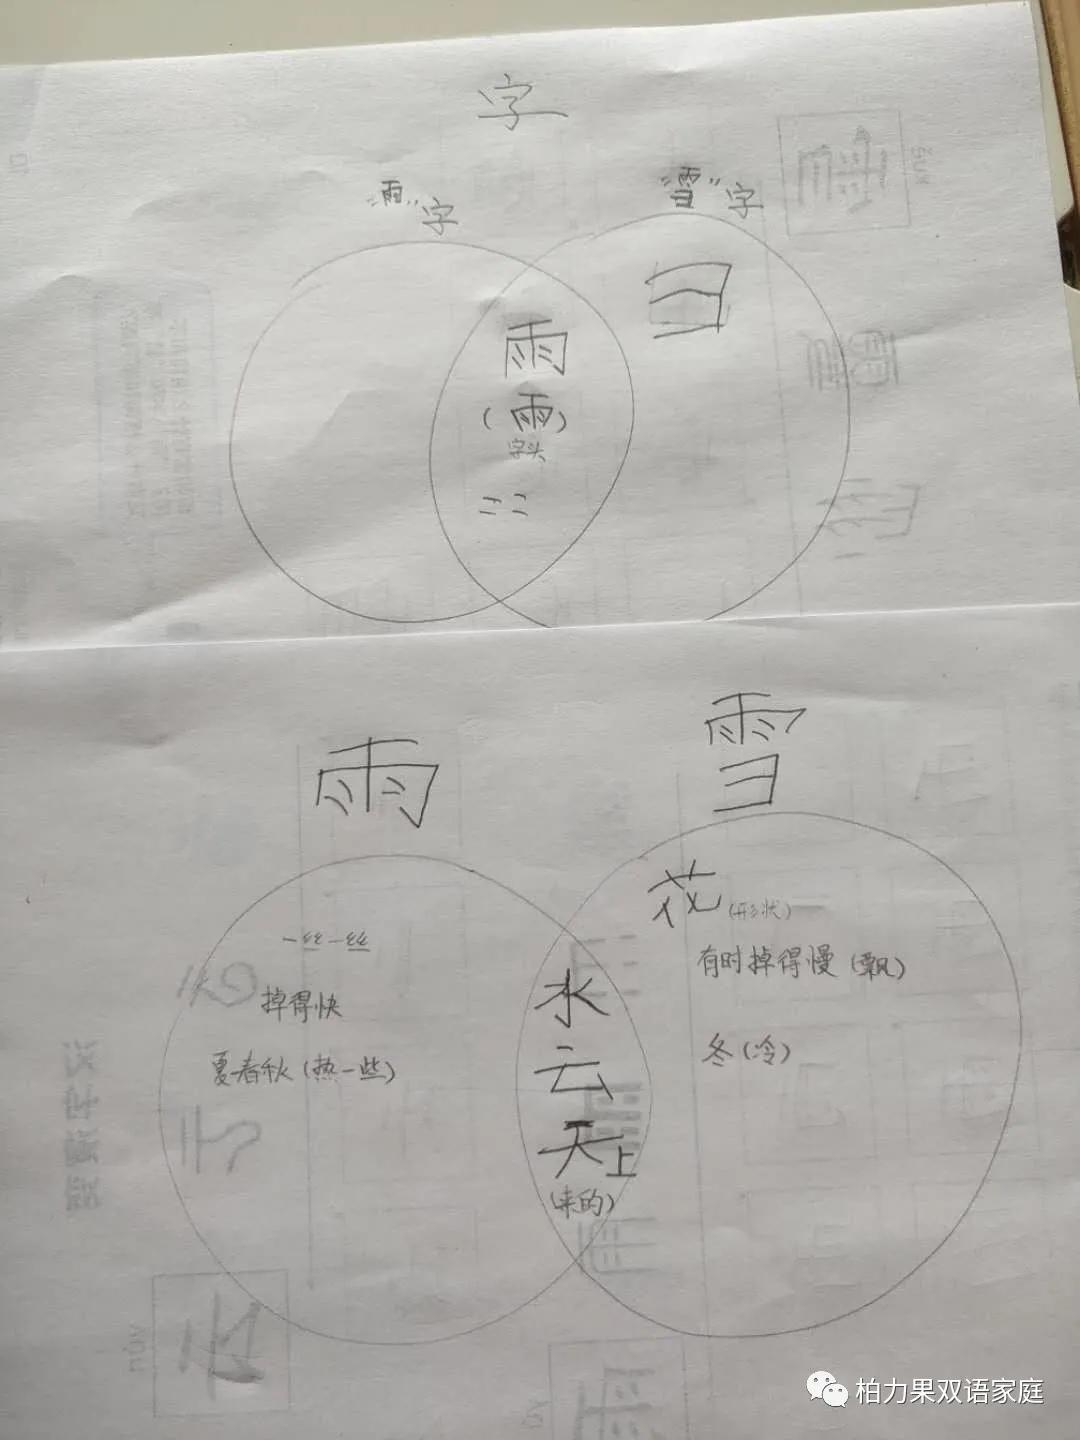 字
“雨”字
“雪”字
彐
雨
(雨)
字头
雨
雪
花(形状)
一丝一丝
有时掉得慢(飘)
水
掉得快
云
冬(冷)
夏春秋(热一些)
天上
(来的)
柏力果双语家庭